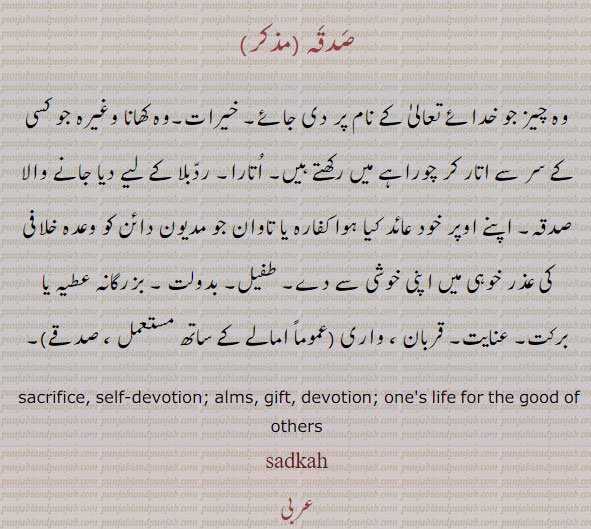 صَدقَہ (مذکر)
وہ چیز جو خدائے تعالیٰ کے نام پر دی جائے۔ خیرات۔وہ کھانا وغیرہ جو کسی
کے سر سے اتار کر چوراہے میں رکھتے ہیں۔ اُتارا۔ ردّبلا کے لیے دیا جانے والا
صدقہ۔ اپنے اوپر خود عائد کیا ہوا کفارہ یا تاوان جو مدیون دائن کو وعدہ خلافی
کی عذر خوہی میں اپنی خوشی سے دے۔ طفیل۔ بدولت ۔ بزرگانہ عطیہ یا
برکت۔ عنایت۔ قربان ، واری (عموماً امالے کے ساتھ مستعمل ، صدقے)۔
sacrifice, self-devotion; alms, gift, devotion; one's life for the good of
others
sadkah
عربی